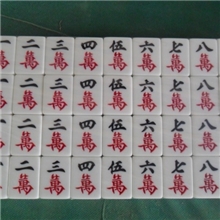 二 三 四 伍 六 七 八
萬 萬 萬 萬 萬 萬 萬
二 三 四 伍 六 七 八
萬 萬 萬 萬 萬 萬 萬
二 三 四 伍 六 七 八
萬 萬 萬 萬 萬 萬 萬
二 三 四 伍 六 七 八
萬 萬 萬 萬 萬 萬 萬